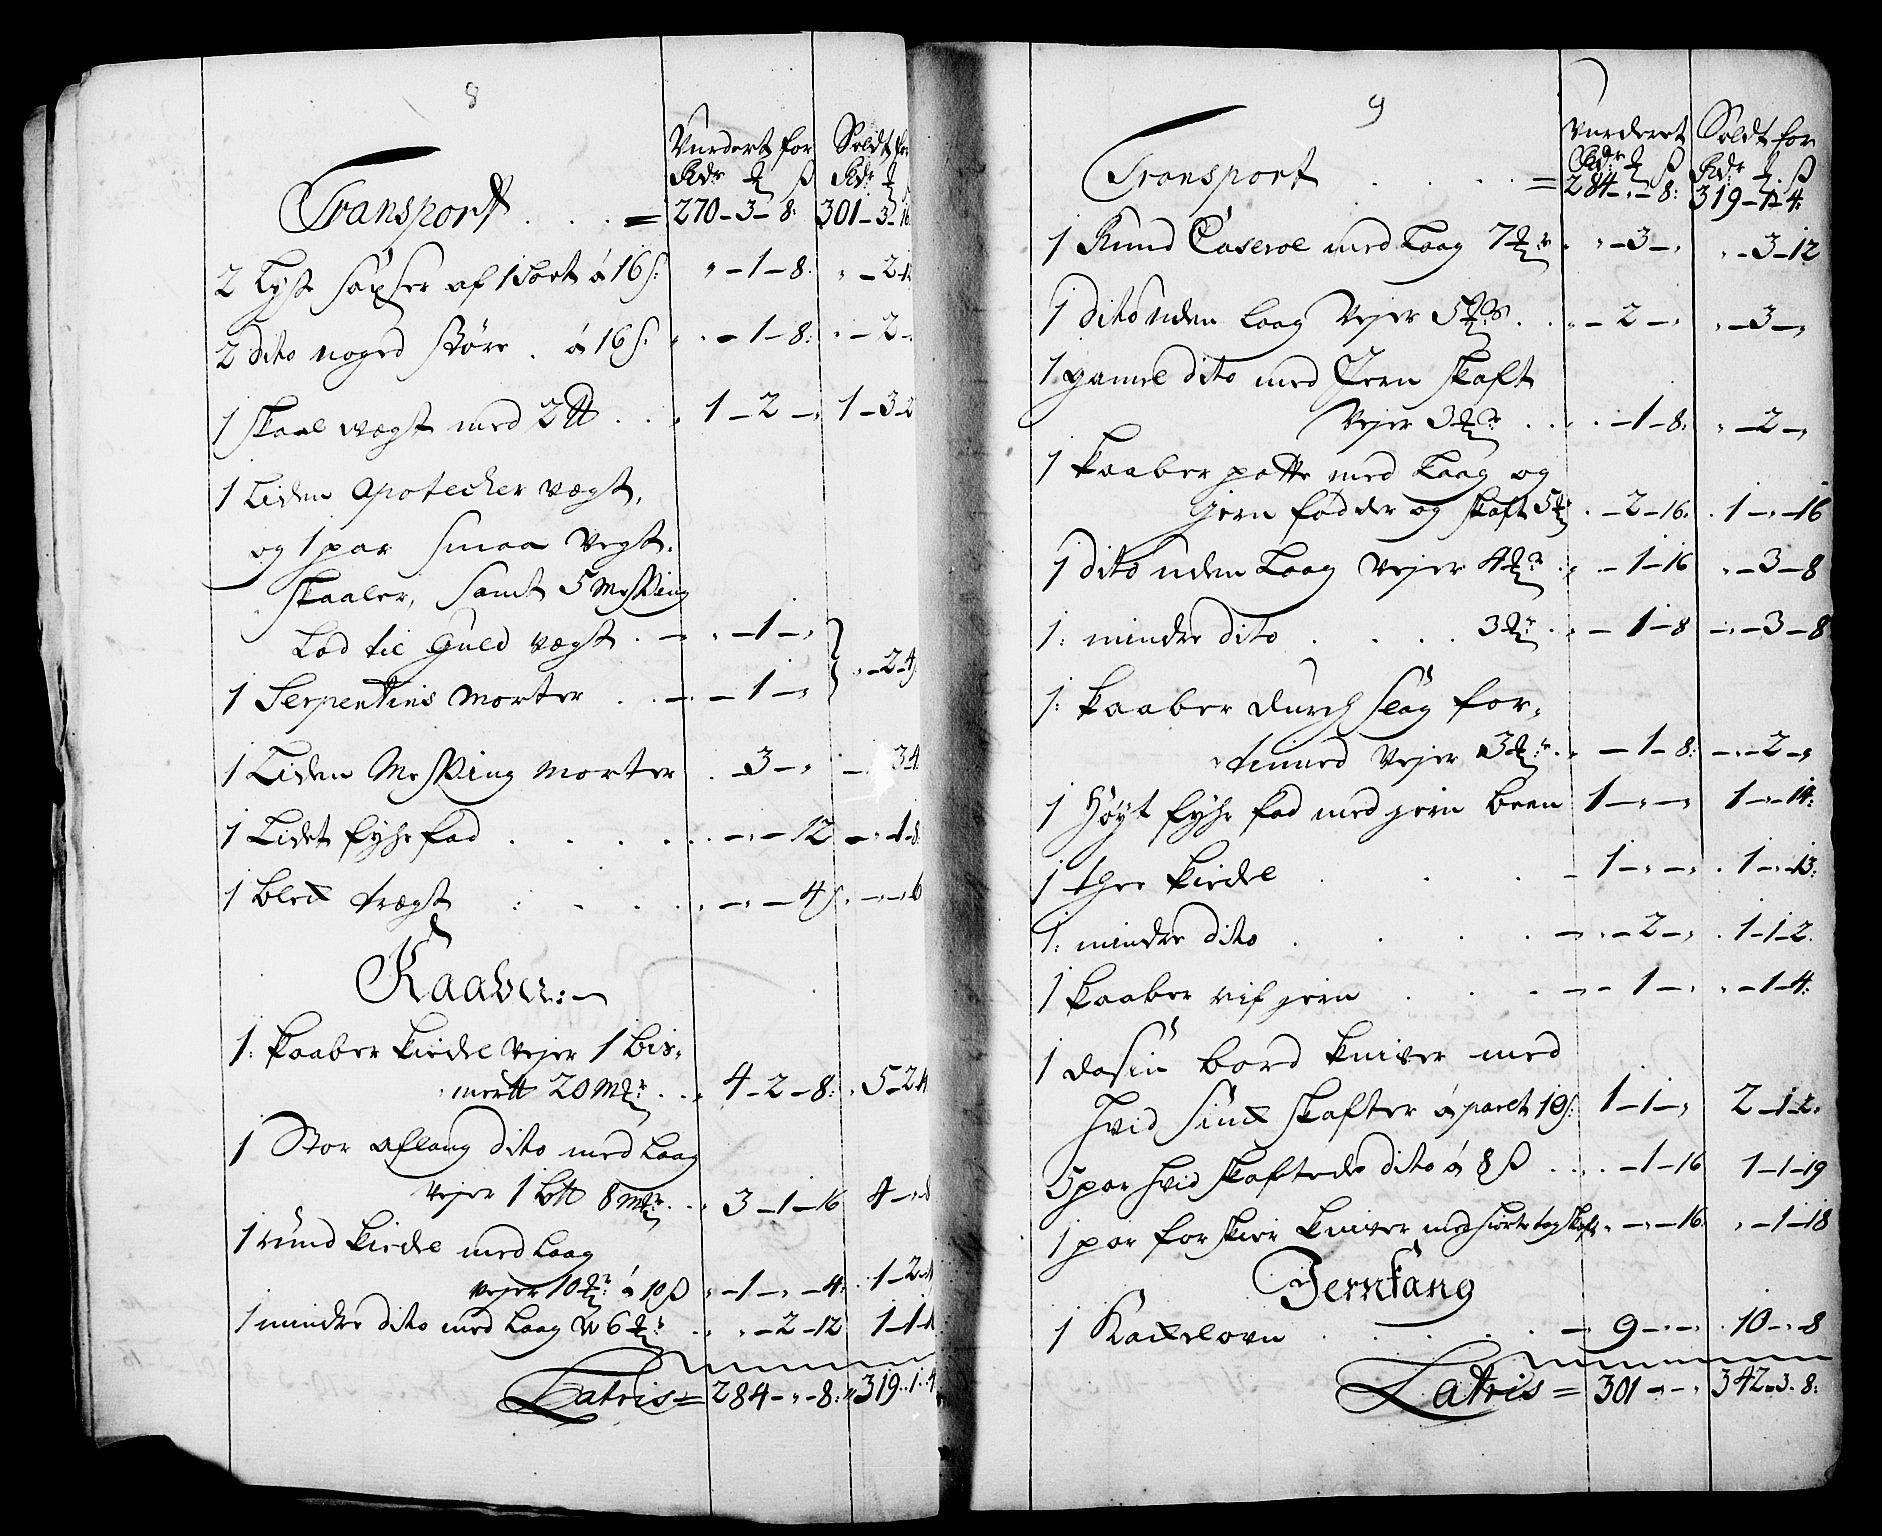 8
Vurdert for Soldt for
Rdr ß Rdr
Transport . . . = 270-3-8: 301-3-16
2 Lyse saxser af 1 sort á 16 s: " -1-8: " -2-12
2 dito noged större . á 16 s. " -1-8: " -2-
1 skaal wægt med 2 tt . . . 1-2-" 1-3-2
1 Liden Apotecher vægt,
og 1 par smaa vegt-
skaaler, samt 5 Messing
Lod til Guld vægt . - " -1-"
1 Serpentins Morter . . - -1-" " -2-4
1 Liden Messing Morter . -3-" - 34
1 Lidet fyhrfad . . . . -"-12 -"1-8
1 Blek trægt : - . . -"-4 s. -"-6
Kaaber:-
1: Kaaber Kiedel vejer 1 bis-
mertt 20 Mkr . . . 4-2-8: 5-2-4
1 Stor aflang dito med Laag
vejer 1 btt 8 mkr . . . 3-1-16 4-"-
1 rund Kiedel med Laag
vejer 10 á 10 ß " -1-"-4: 1-2-
1 mindre dito med Laag W 6 . . " -2-12 1-1-
Latris = 284-"-8: 319.1.4
9
Vurderet Soldt for
Rdr ß Rdr ß
Transport . . . . = 284-"-8: 319-1-4:
1 Rund Caserol med Laag 7 " -3-" " -3-12
1 dito uden Laag Vejer 5 . . " -2-" " -3-"
1 gamel dito med Jern skaft
Vejer 3 . . . -1-8: " -2-"
1 kaaber potte med Laag og
jern fødder og skaft 5 . -2-16. . 1-"-16
1 dito uden Laag Vejer 4 . " -1-16 " -3-8
1: mindre dito . . . . 3 . " -1-8 -"-3-8
1: kaaber Durchslag for-
tinned Vejer 3 . " -1-8: -"-2-"
1 Høyt fyhr fad med jern been 1-"-" 1-"-14:
1 thee kiedel . . . - 1-"-" . 1-"-13:
1: mindre dito . . . . - " -2-" . 1-1-2.
1 kaaber rif jern . . . - - 1-" " -1-4:
1 dosin bord kniver med
hvid sink skafter á paret 10 s: 1-1-" 2-1-2"
5 par hvid skaftede dito á 8 ß . . . -1-16 1-1-19
1 par forskier kniver med hiortetag skaft " -"-16 " -1-18
Jernfang
1 Kackelovn . . . . - 9-"-" . 10-"-8
Latris = 301-"-" 342-3-8: